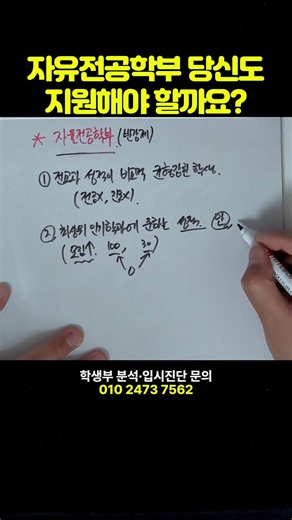 자유전공학부 당신도
지원해야 할까요?
* 자유전공학부 (반강제)
① 전교과 성적이 비교적 균형잡힌 학생.
(전공X, 진로X).
② 최상위 인기학과에 준하는 성적. 인
(모집↑. 100, 30)
0
학생부 분석·입시진단 문의
010 2473 7562